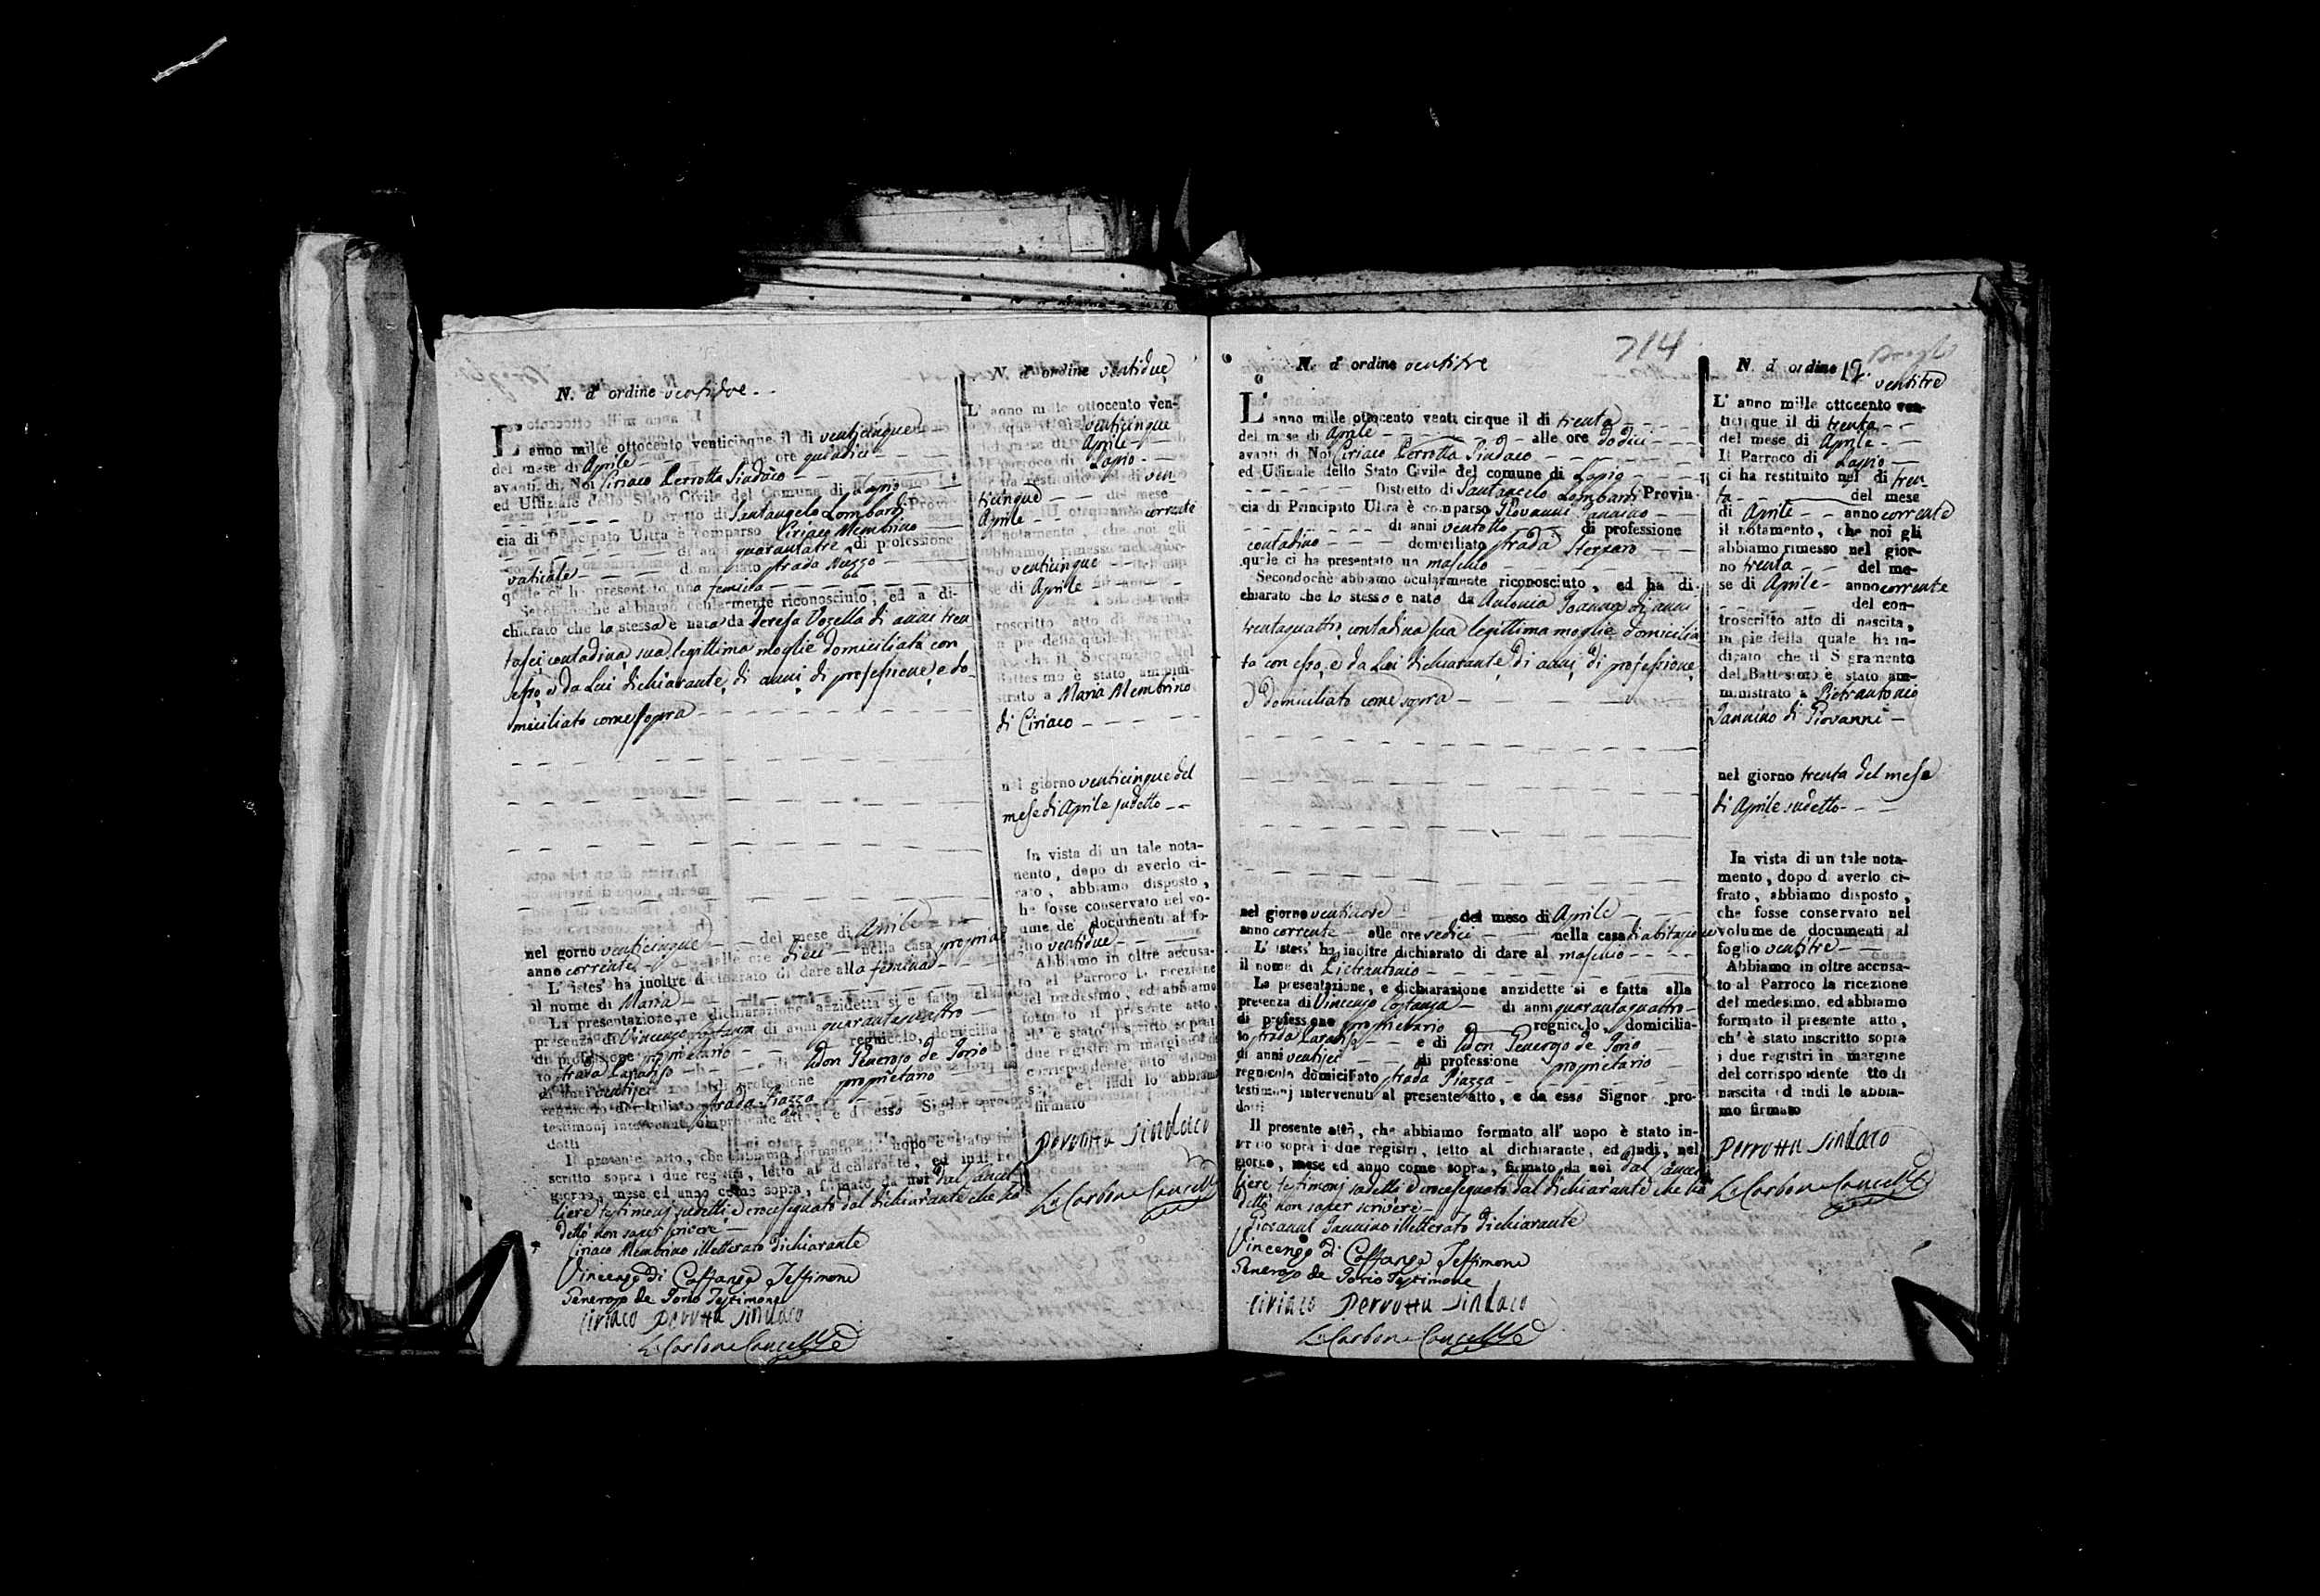 N. d' ordine ventidue
L' anno mille ottocento venticinque il di venticinque
del mese di Aprile alle ore quindici
avanti di Noi Ciriaco Perrotta Sindaco
ed Uffiziale dello Stato Civile del Comune di Lapio
Distretto di Santangelo Lombardi Provin-
cia di Principato Ultra è comparso Ciriaco Membrino
di anni quarantatre di professione
vaticale domiciliato strada Nuzzo
quale ci ha presentato una femina
Secondochè abbiamo ocularmente riconosciuto, ed a di-
chiarato che la stessa è nata da Teresa Vozella di anni tren
tasei contadina sua legittima moglie domiciliata con
esso, e da Lui dichiarante, di anni, di professione, e do-
miciliato come sopra
nel gorno venticinque del mese di Aprile
anno corrente alle ore dieci nella casa propria
L' istes' ha inoltre dichiarato di dare alla femina
il nome di Maria
La presentazione, e dichiarazione anzidetta si è fatto alla
presenza di Vincenzo Costanza di anni quarantaquattro
di professione proprietario regnicolo, domicilia
to strada Paradiso e di Don Generoso de Iorio
di anni ventisei di professione proprietario
regnicolo domiciliato strada Piazza
testimonj intervenuti al presente atto, e da esso Signor pro-
dotti
Il presente atto, che abbiamo formato all' uopo è stato in-
scritto sopra i due registri, letto al dichiarante, ed indi nel
giorno, mese ed anno come sopra, firmato da noi dal Cancel
liere testimonj sudetti e crocesegnato dal dichiarante che ha
detto non saper scrivere
Ciriaco Membrino illetterato dichiarante
Vincenzo di Costanza Testimone
Generoso de Iorio Testimone
Ciriaco Perrotta Sindaco
L. Carbone Cancelle
N. d' ordine ventidue
L' anno mille ottocento ven-
venticinque
Aprile
Lapio
ven
ticinque del mese
Aprile corrente
notamento, che noi gli
abbiamo rimesso nel gior-
venticinque
se di Aprile
troscritto atto di nascita,
a piè della quale
che il Sacramento del
Battesimo è stato ammini-
strato a Maria Membrino
di Ciriaco
nel giorno venticinque del
mese di Aprile sudetto
In vista di un tale nota-
mento, dopo di averlo ci-
frato, abbiamo disposto,
che fosse conservato nel vo-
lume de' documenti al fo-
glio ventidue
Abbiamo in oltre accusa-
to al Parroco la ricezione
del medesimo, ed abbiamo
formato il presente atto,
ch' è stato inscritto sopra i
due registri in margine
corrispondente atto
ed indi lo abbiamo
firmato
Perrotta Sindaco
L. Carbone Cancelle
714
N. d' ordine ventitre
L' anno mille ottocento venti cinque il di trenta
del mese di Aprile alle ore dodici
avanti di Noi Ciriaco Perrotta Sindaco
ed Uffiziale dello Stato Civile del comune di Lapio
Distretto di Santangelo Lombardi Provin-
cia di Principato Ultra è comparso Giovanni Iannino
di anni ventotto di professione
contadino domiciliato strada
quale ci ha presentato un maschio
Secondochè abbiamo ocularmente riconosciuto, ed ha di-
chiarato che lo stesso e nato da Antonia di anni
trentaquattro contadina sua legittima moglie domicilia
ta con esso, e da Lui dichiarante, di anni, di professione,
e domiciliato come sopra
nel giorno ventinove del mese di Aprile
anno corrente alle ore sedici nella casa di abitazione
L' istess' ha inoltre dichiarato di dare al maschio
il nome di Pietrantonio
La presentazione, e dichiarazione anzidette si e fatta alla
presenza di Vincenzo Costanza di anni quarantaquattro
di professione proprietario regnicolo, domicilia-
to strada Paradiso e di Don Generoso de Iorio
di anni ventisei di professione proprietario
regnicolo domiciliato strada Piazza
testimonj intervenuti al presente atto, e da esso Signor pro-
dotti
Il presente atto, che abbiamo formato all' uopo è stato in-
scritto sopra i due registri, letto al dichiarante, ed indi, nel
giorno, mese ed anno come sopra, firmato da noi dal Cancel
liere testimonj sudetti e crocesegnato dal dichiarante che ha
detto non saper scrivere
Giovanni Iannino illetterato dichiarante
Vincenzo di Costanza Testimone
Generoso de Iorio Testimone
Ciriaco Perrotta Sindaco
L. Carbone Cancelle
N. d ordine
ventitre
L' anno mille ottocento ven-
ticinque il di trenta
del mese di Aprile
Il Parroco di Lapio
ci ha restituito nel di tren-
ta del mese
di Aprile anno corrente
il notamento, che noi gli
abbiamo rimesso nel gior-
no trenta del me-
se di Aprile anno corrente
del con-
troscritto atto di nascita,
in piè della quale ha in-
dicato che il Sagramento
del Battesimo è stato am-
ministrato a Pietrantonio
Iannino di Giovanni
nel giorno trenta del mese
di Aprile sudetto
In vista di un tale nota-
mento, dopo d averlo ci-
frato, abbiamo disposto,
che fosse conservato nel
volume de documenti al
foglio ventitre
Abbiamo in oltre accusa-
to al Parroco la ricezione
del medesimo, ed abbiamo
formato il presente atto,
ch' è stato inscritto sopra
i due registri in margine
del corrispondente tto di
nascita ed indi lo abbia-
mo firmato
Perrotta Sindaco
L. Carbone Cancelle